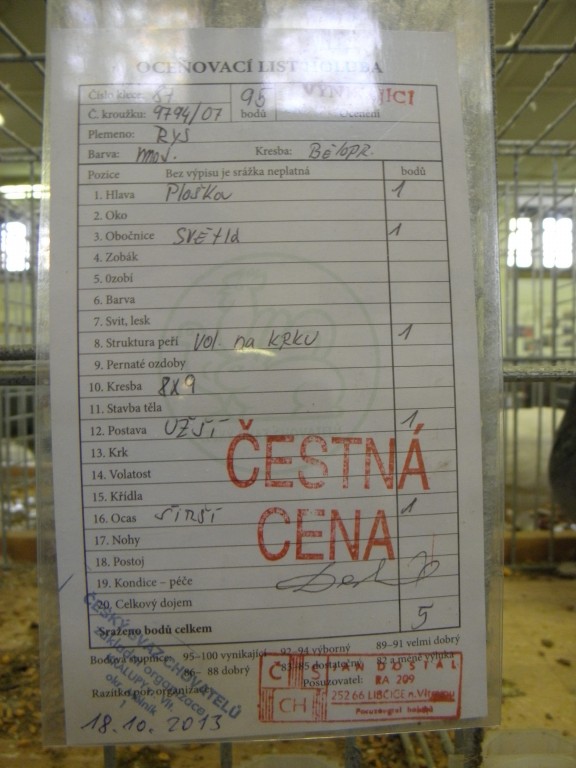 OCEŇOVACÍ LIST HOLUBA
Číslo klece: 87 95 VYNIKAJÍCI
Č. kroužku: 9794/07 bodů Ocenění
Plemeno: RYS
Barva: mod. Kresba: BĚLOPR.
Pozice Bez výpisu je srážka neplatná bodů
1. Hlava Ploška 1
2. Oko
3. Obočnice SVĚTLÁ 1
4. Zobák
5. 0zobí
6. Barva
7. Svit, lesk
8. Struktura peří vol. na krku 1
9. Pernaté ozdoby
10. Kresba 8x9
11. Stavba těla
12. Postava UŽŠÍ 1
13. Krk
14. Volatost
15. Křídla
16. Ocas ŠIRŠÍ 1
17. Nohy
18. Postoj
19. Kondice – péče
20. Celkový dojem
Sraženo bodů celkem 5
ČESTNÁ
CENA
Bodová stupnice 95–100 vynikající 92–94 výborný 89–91 velmi dobrý
86– 88 dobrý 83–85 dostatečný 82 a méně výluka
Razítko poř. organizace Posuzovatel:
ČESKÝ SVAZ CHOVATELŮ
základní organizace
18.10.2013
Č DOSTAL
CH RA 209
252 66 LIBČICE n.Vlt.
Posuzovatel holubů